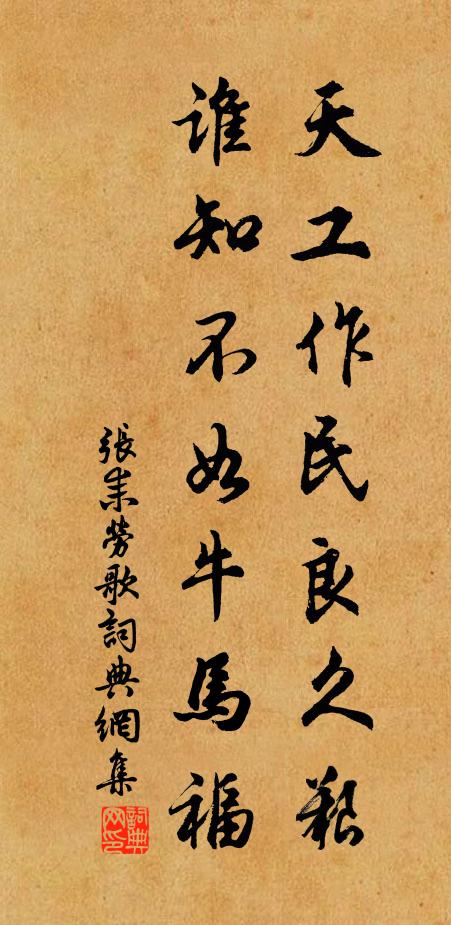 天工作民良久艱
誰知不如牛馬福
張耒勞歌詞典網集
詞典
网印